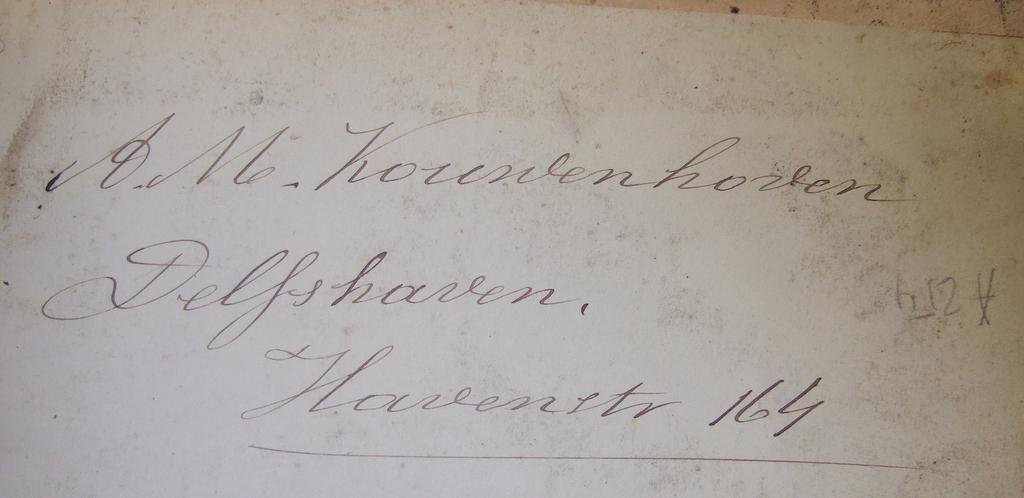 A. M. Kouwenhoven
Delfshaven.
Havenstr 164